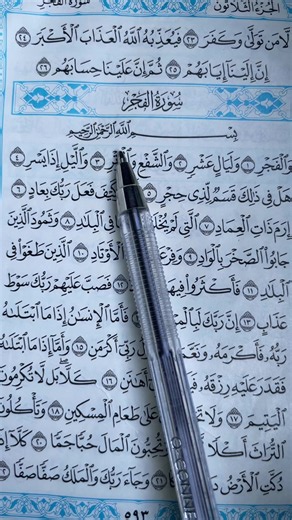 الجزء الثلاثون
سورة الفجر
لَّا مَن تَوَلَّىٰ وَكَفَرَ ٢٣ فَيُعَذِّبُهُ اللَّهُ الْعَذَابَ الْأَكْبَرَ ٢٤
إِنَّ إِلَيْنَا إِيَابَهُمْ ٢٥ ثُمَّ إِنَّ عَلَيْنَا حِسَابَهُم ٢٦
سُورَةُ الْفَجْرِ
بِسْمِ اللَّهِ الرَّحْمَٰنِ الرَّحِيمِ
وَالْفَجْرِ ١ وَلَيَالٍ عَشْرٍ ٢ وَالشَّفْعِ ٣ وَاللَّيْلِ إِذَا يَسْرِ ٤
هَلْ فِي ذَٰلِكَ قَسَمٌ لِّذِي حِجْرٍ ٥ كَيْفَ فَعَلَ رَبُّكَ بِعَادٍ ٦
إِرَمَ ذَاتِ الْعِمَادِ ٧ الَّتِي لَمْ فِي الْبِلَادِ ٨ وَثَمُودَ الَّذِينَ
جَابُوا الصَّخْرَ بِالْوَادِ ٩ الْأَوْتَادِ ١٠ الَّذِينَ طَغَوْا فِي
الْبِلَادِ ١١ فَأَكْثَرُوا ١٢ فَصَبَّ عَلَيْهِمْ رَبُّكَ سَوْطَ
عَذَابٍ ١٣ إِنَّ رَبَّكَ ١٤ فَأَمَّا الْإِنسَانُ إِذَا مَا ابْتَلَاهُ
رَبُّهُ فَأَكْرَمَهُ رَبِّي أَكْرَمَنِ ١٥ وَأَمَّا إِذَا مَا ابْتَلَاهُ
فَقَدَرَ عَلَيْهِ رِزْقَهُ أَهَانَنِ ١٦ كَلَّا بَل لَّا تُكْرِمُونَ
الْيَتِيمَ ١٧ وَلَا عَلَىٰ طَعَامِ الْمِسْكِينِ ١٨ وَتَأْكُلُونَ
التُّرَاثَ أَكْلًا وَتُحِبُّونَ الْمَالَ حُبًّا جَمًّا ٢٠ كَلَّا إِذَا
دُكَّتِ الْأَرْضُ ٢١ وَجَاءَ رَبُّكَ وَالْمَلَكُ صَفًّا صَفًّا ٢٢
٥٩٣